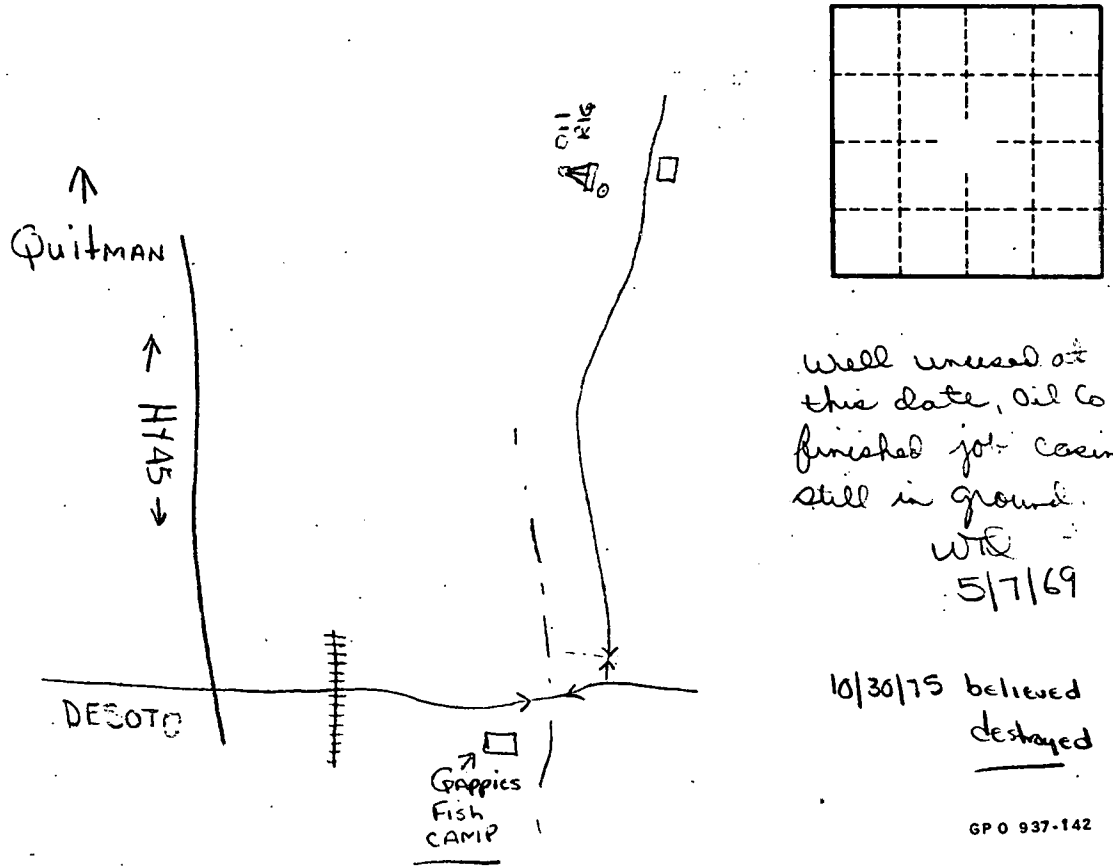 OIL
RIG
Quitman
← HY 45 →
DESOTO
Gappies
Fish
CAMP
Well unused at
this date, Oil Co
finished job casin
still in ground.
5/7/69
10/30/75 believed
destroyed
GPO 937-142